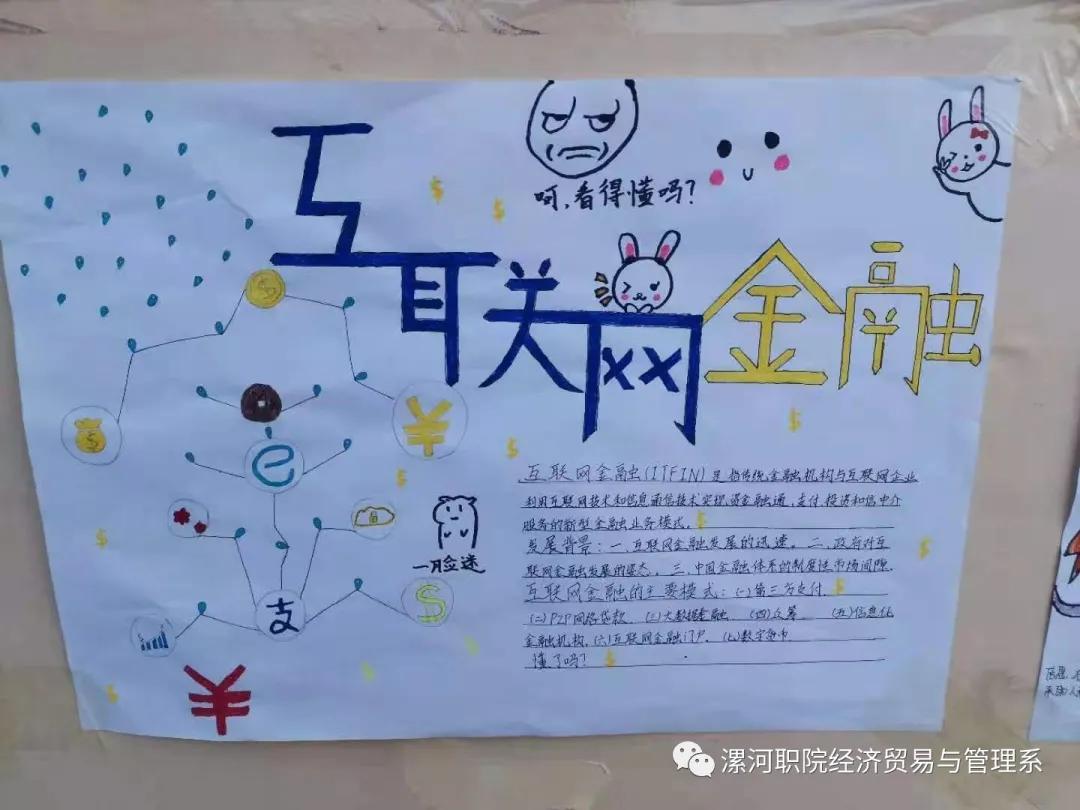 呵,看得懂吗?
互联网金融
一脸迷
支
互联网金融(ITFIN)是指传统金融机构与互联网企业
利用互联网技术和信息通信技术实现资金融通,支付,投资和信中介
服务的新型金融业务模式。
发展背景:一.互联网金融发展的迅速。二.政府对互
联网金融发展的姿态。三.中国金融体系的制度性市场间隙.
互联网金融的主要模式:(一)第三方支付.
(二)P2P网络贷款. (三)大数据金融. (四)众筹. (五)信息化
金融机构.(六)互联网金融门户. (七)数字货币
懂了吗?
漯河职院经济贸易与管理系